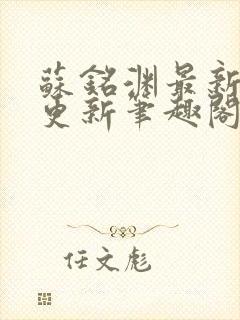 蘇銘淵最新
更新筆趣閣
任文彪